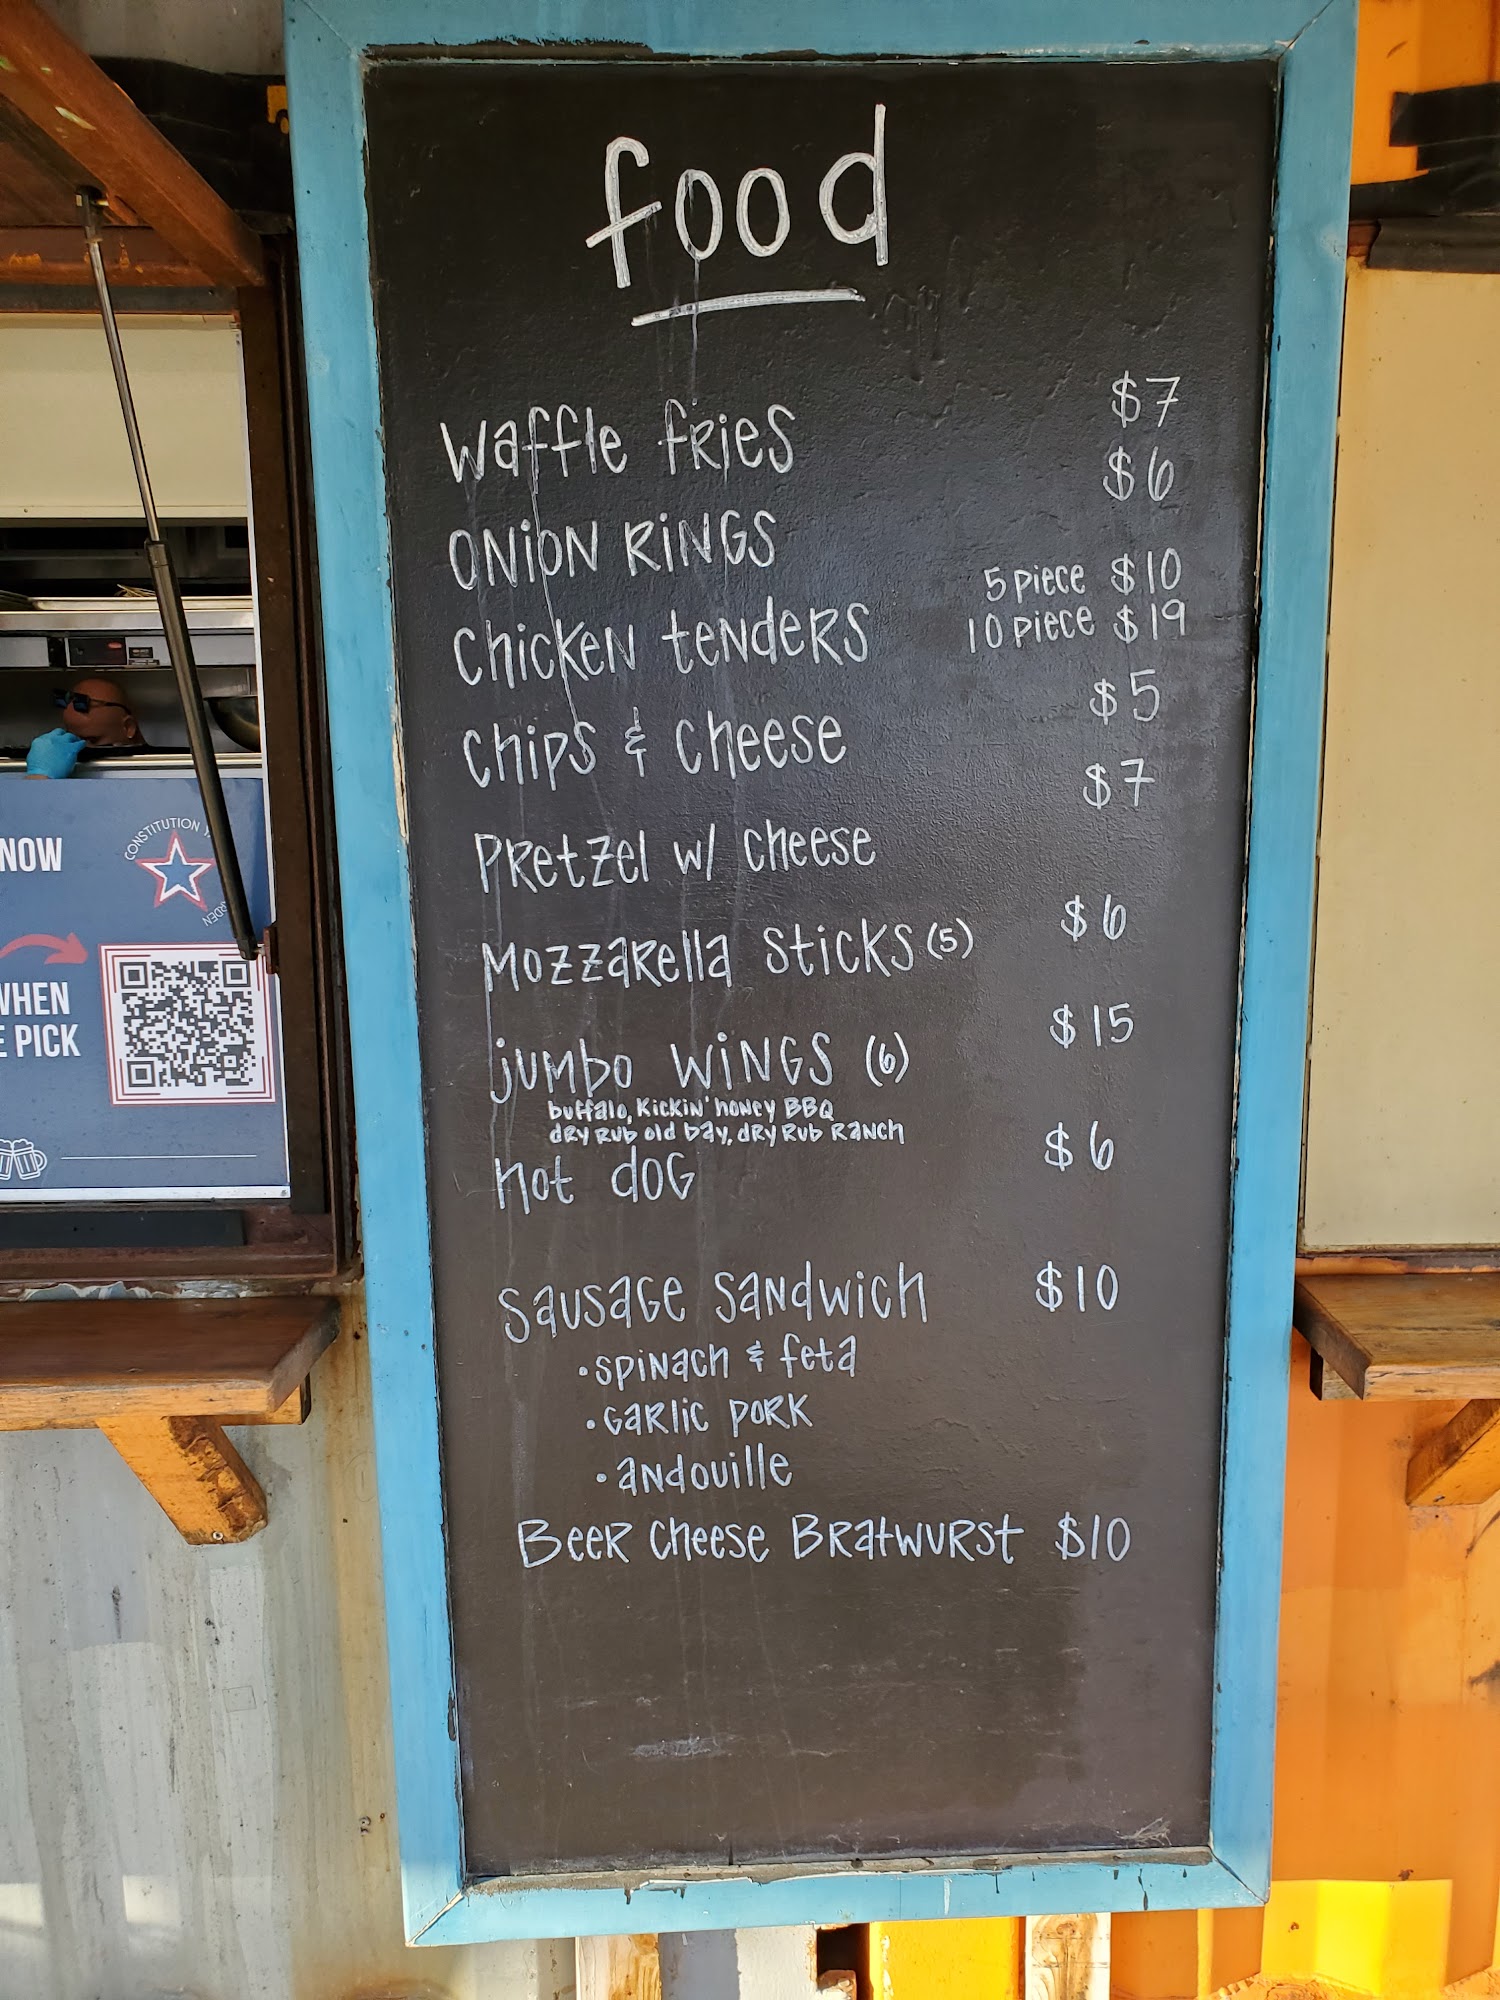 food
Waffle fries $7
ONiON RiNGS $6
Chicken tenders 5 piece $10
10 piece $19
Chips & Cheese $5
Pretzel w/ Cheese $7
Mozzarella Sticks (5) $6
jumbo WiNGS (6) $15
buffalo, Kickin' honey BBQ
dry rub old bay, dry rub ranch
hot doG $6
Sausage Sandwich $10
• spinach & feta
• Garlic pork
• andouille
Beer Cheese Bratwurst $10
NOW
CONSTITUTION
WHEN
PICK